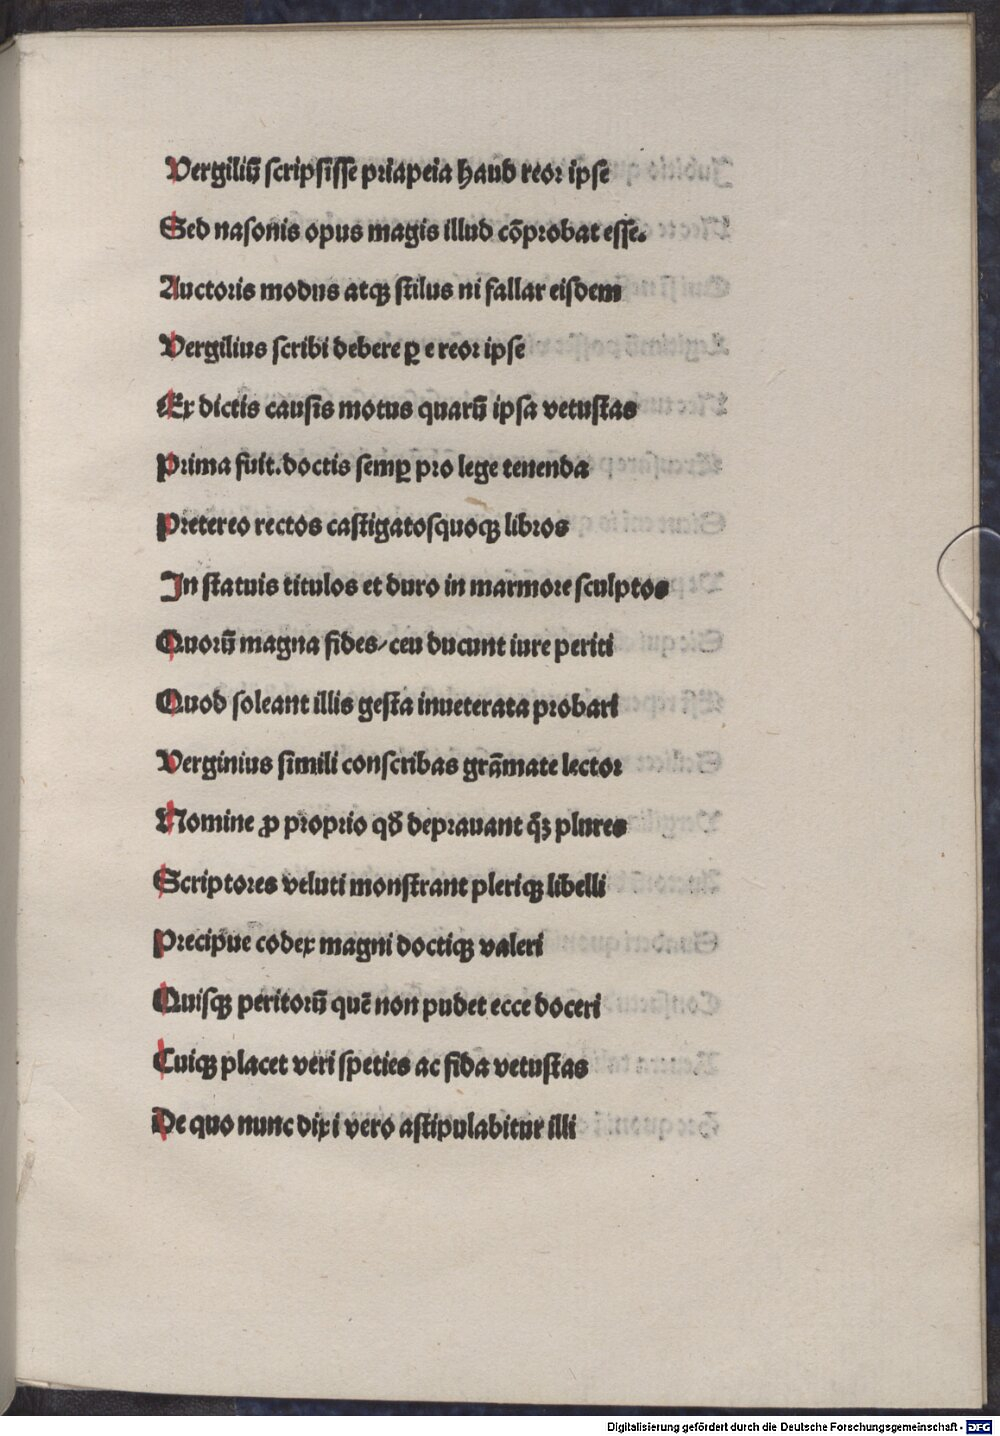 Vergiliū scripsisse priapeia haud reor ipse
Sed nasonis opus magis illud cōprobat esse.
Auctoris modus atqꝫ stilus ni fallar eisdem
Vergilius scribi debere ꝑ e reor ipse
Ex dictis causis motus quarū ipsa vetustas
Prima fuit. doctis semꝑ pro lege tenenda
Pretereo rectos castigatosquoqꝫ libros
In statuis titulos et duro in marmore sculptos
Quorū magna fides/ ceu ducunt iure periti
Quod soleant illis gesta inueterata probari
Verginius simili conscribas grāmate lector
Nomine ꝓ proprio qđ deprauant q̄ꝫ plures
Scriptores veluti monstrant pleriqꝫ libelli
Precipue codex magni doctiqꝫ valeri
Quisqꝫ peritorū quē non pudet ecce doceri
Cuiqꝫ placet veri speties ac fida vetustas
De quo nunc dixi vero astipulabitur illi
Digitalisierung gefördert durch die Deutsche Forschungsgemeinschaft - DFG